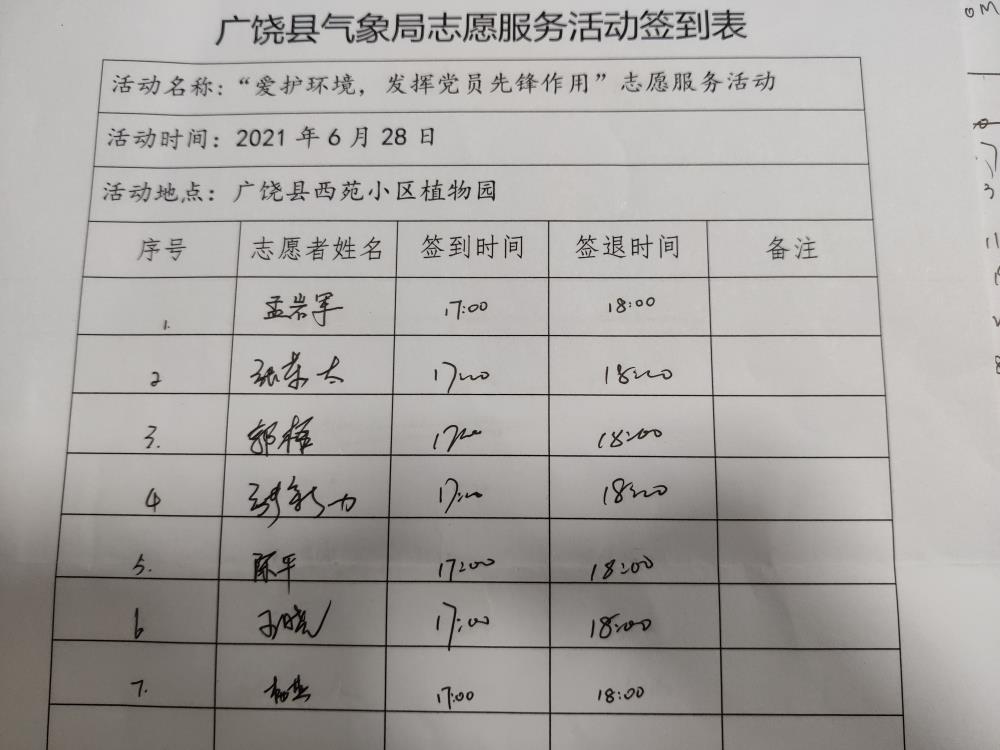 广饶县气象局志愿服务活动签到表
活动名称：“爱护环境，发挥党员先锋作用”志愿服务活动
活动时间：2021 年 6 月 28 日
活动地点：广饶县西苑小区植物园
序号 志愿者姓名 签到时间 签退时间 备注
1. 孟岩军 17:00 18:00
2 张荣太 17:00 18:00
3. 郭梅 17:00 18:00
4 17:00 18:00
5. 陈平 17:00 18:00
6 17:00 18:00
7. 17:00 18:00